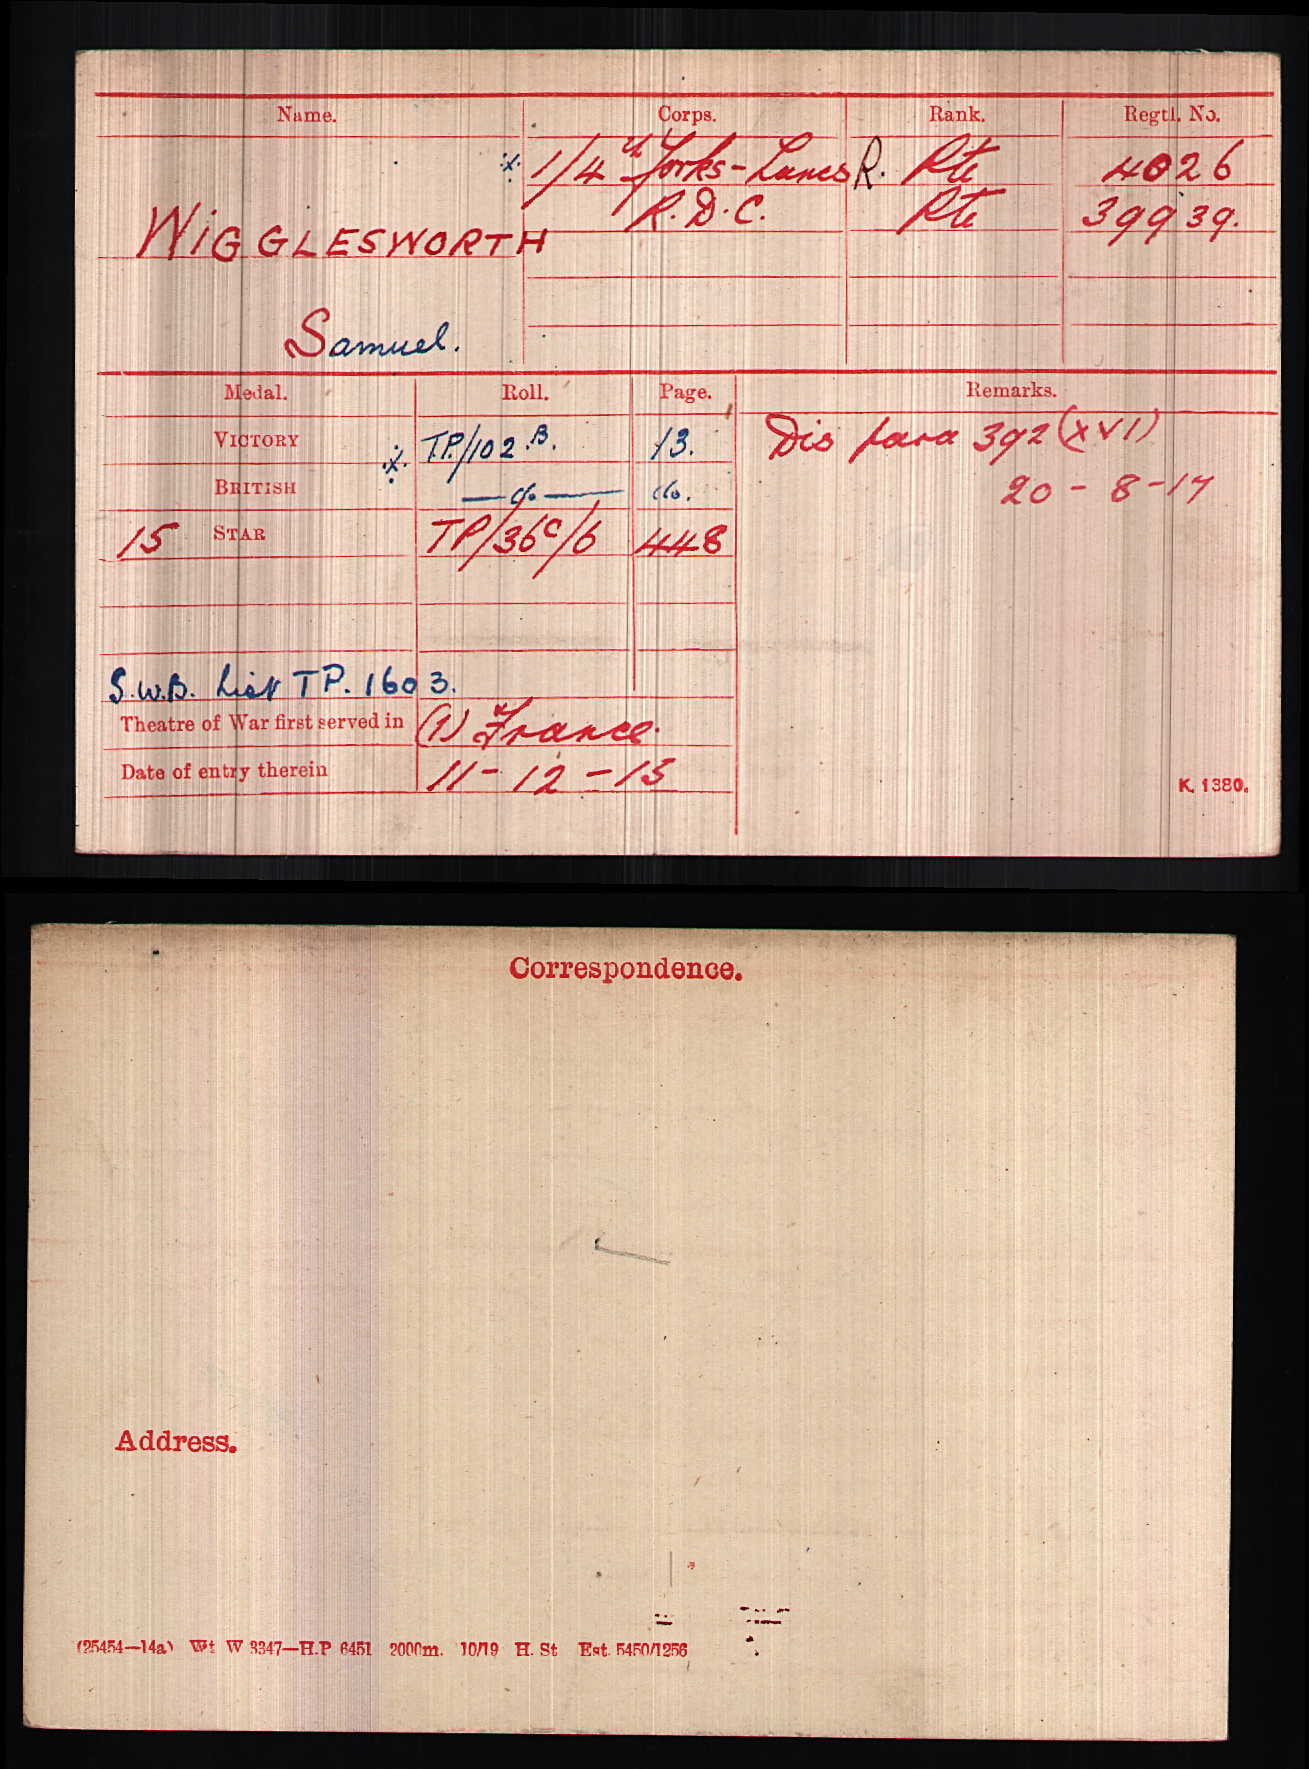 Name. Corps. Rank. Regtl. No.
1/4th Yorks - Lancs R. Pte 4026
R.D.C. Pte 39939.
WIGGLESWORTH
Samuel.
Medal. Roll. Page. Remarks.
VICTORY TP/102.B. 13. Dis para 392 (XVI)
BRITISH — do — do. 20 - 8 - 17
15 STAR TP/36C/6 448
S.W.B. List TP. 1603.
Theatre of War first served in (1) France.
Date of entry therein 11 - 12 - 15
K. 1380.
Correspondence.
Address.
(25454—14a) Wt W 3347—H.P 6451 2000m. 10/19 H. St Est. 5450/1256